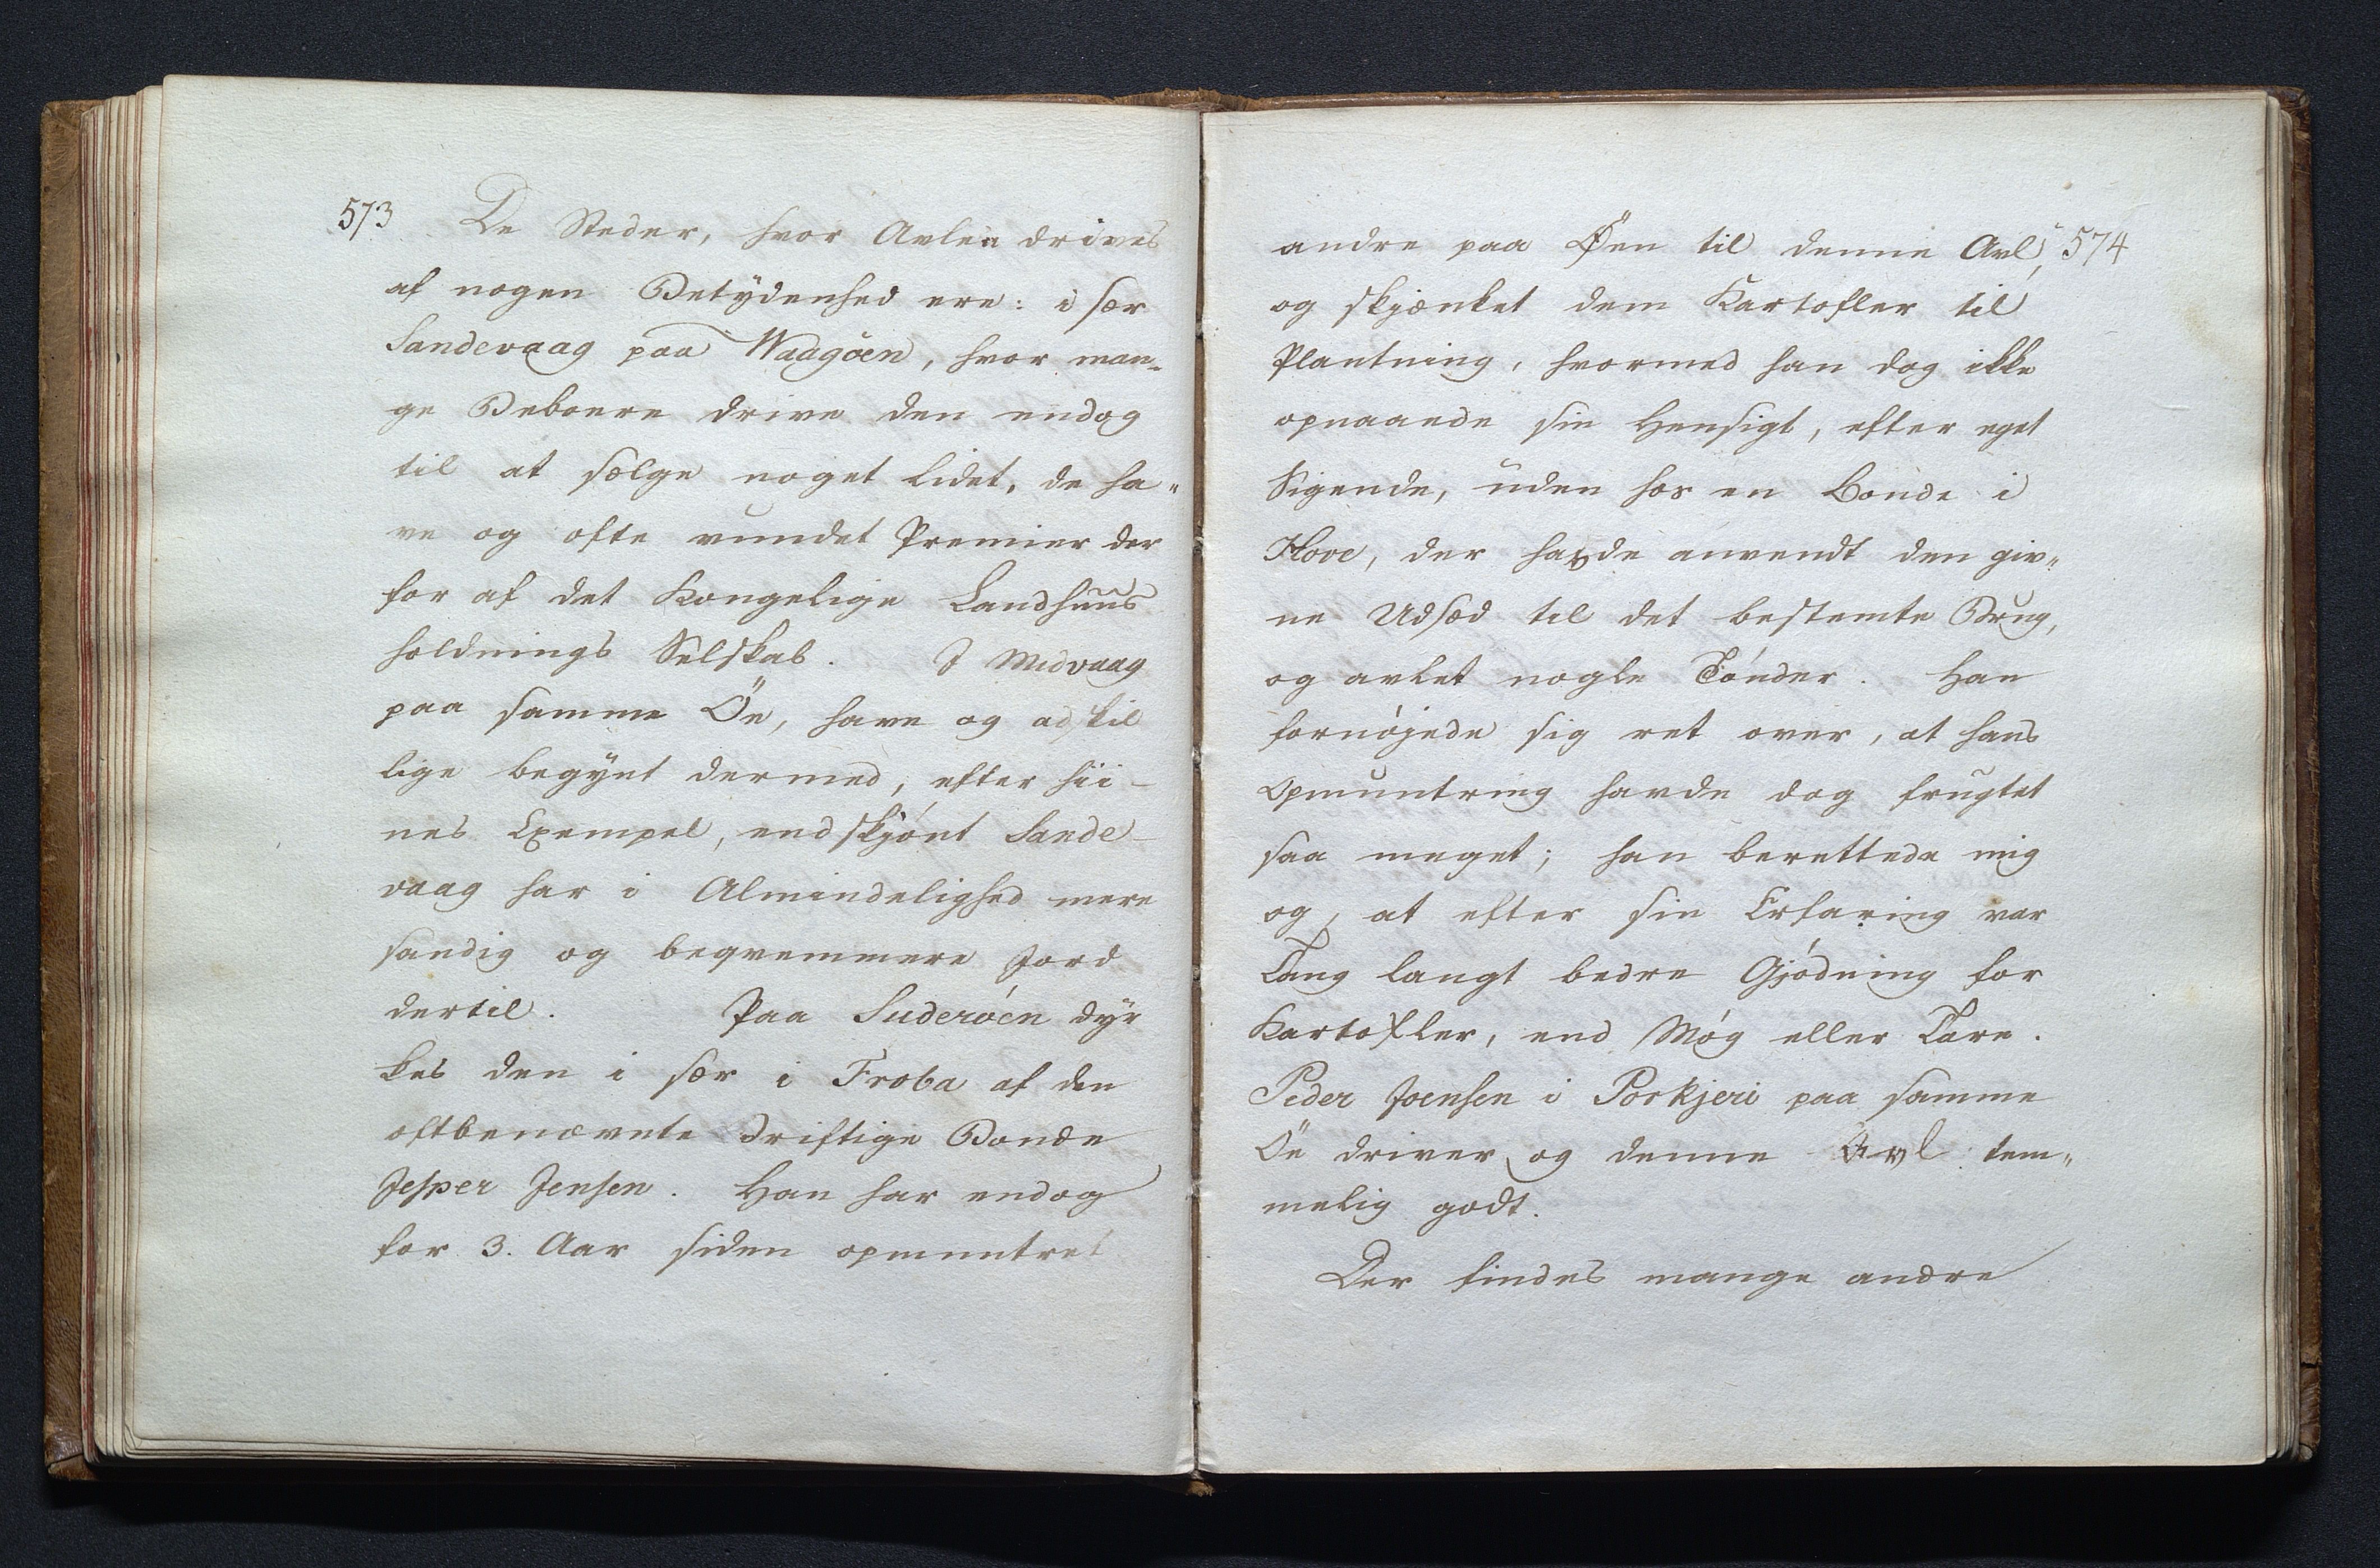 573 De Steder, hvor Avlen drives
af nogen Betÿdenhed ere: i sær
Sandevaag paa Waagöen, hvor man-
ge Beboere drive den endog
til at sælge noget lidet, de ha"
ve og ofte vundet Premier der
for af det Kongelige Landhuus
holdnings Selskab. I Midvaag
paa samme Öe, have og adskil
lige begÿnt dermed, efter hii-
nes Exempel, endskjónt Sande-
vaag har i Almindelighed mere
sandig og beqvemmere Jord
dertil. Paa Suderóen dÿr
kes den i sær i Froba af den
oftbenævnte driftige Bonde
Jesper Jensen. Han har endog
for 3. Aar siden opmuntret
andre paa Øen til denne Avl, 574
og skjænket dem Kartofler til
Plantning, hvormed han dog ikke
opnaaede sin Hensigt, efter eget
Sigende, uden hos en Bonde i
Hove, der havde anvendt den giv"
ne Udsæd til det bestemte Brug,
og avlet nogle Tónder. Han
fornójede sig ret over, at hans
Opmuntring havde dog frugtet
saa meget; han berettede mig
og, at efter sin Erfaring var
Tang langt bedre Gjódning for
Kartofler, end Móg eller Tare.
Peder Joensen i Porkjeri paa samme
Öe driver og denne Avl tem"
melig godt.
Der findes mange andre